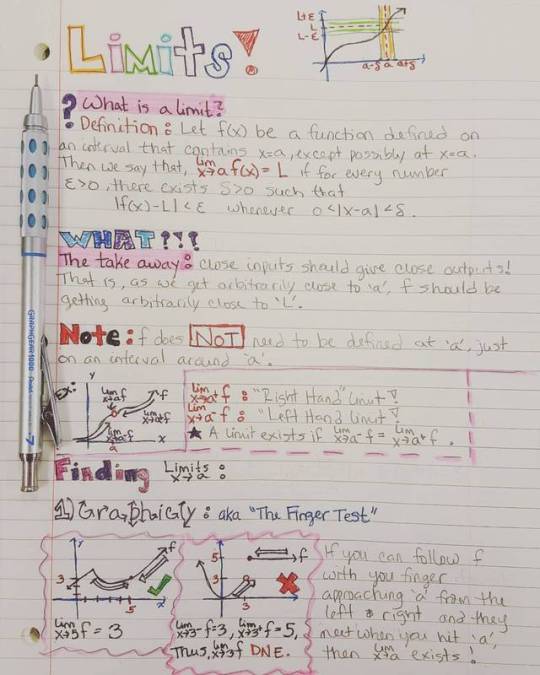 Limits!
L+ε
L
L-ε
a-δ a a+δ
? What is a limit?
! Definition: Let f(x) be a function defined on
an interval that contains x=a, except possibly at x=a.
Then we say that, lim x→a f(x) = L if for every number
ε>0, there exists δ>0 such that
|f(x)-L| < ε whenever 0<|x-a|<δ.
WHAT?!!
The take away: close inputs should give close outputs!
That is, as we get arbitrarily close to 'a', f should be
getting arbitrarily close to 'L'.
Note: f does NOT need to be defined at 'a', just
on an interval around 'a'.
Ex:
y
lim x→a f
f
lim x→a+ f
lim x→a- f
a
x
lim x→a+ f : "Right Hand" limit!
lim x→a- f : "Left Hand limit!
★ A limit exists if lim x→a- f = lim x→a+ f.
Finding Limits x→a :
1) Graphicly: aka "The Finger Test"
y
f
3
5
x
lim x→5 f = 3
5
3
f
3
lim x→3- f=3, lim x→3+ f=5,
Thus, lim x→3 f DNE.
If you can follow f
with you finger
approaching 'a' from the
left & right and they
meet when you hit 'a',
then lim x→a exists!
GRAPHGEAR 1000
Pentel
7